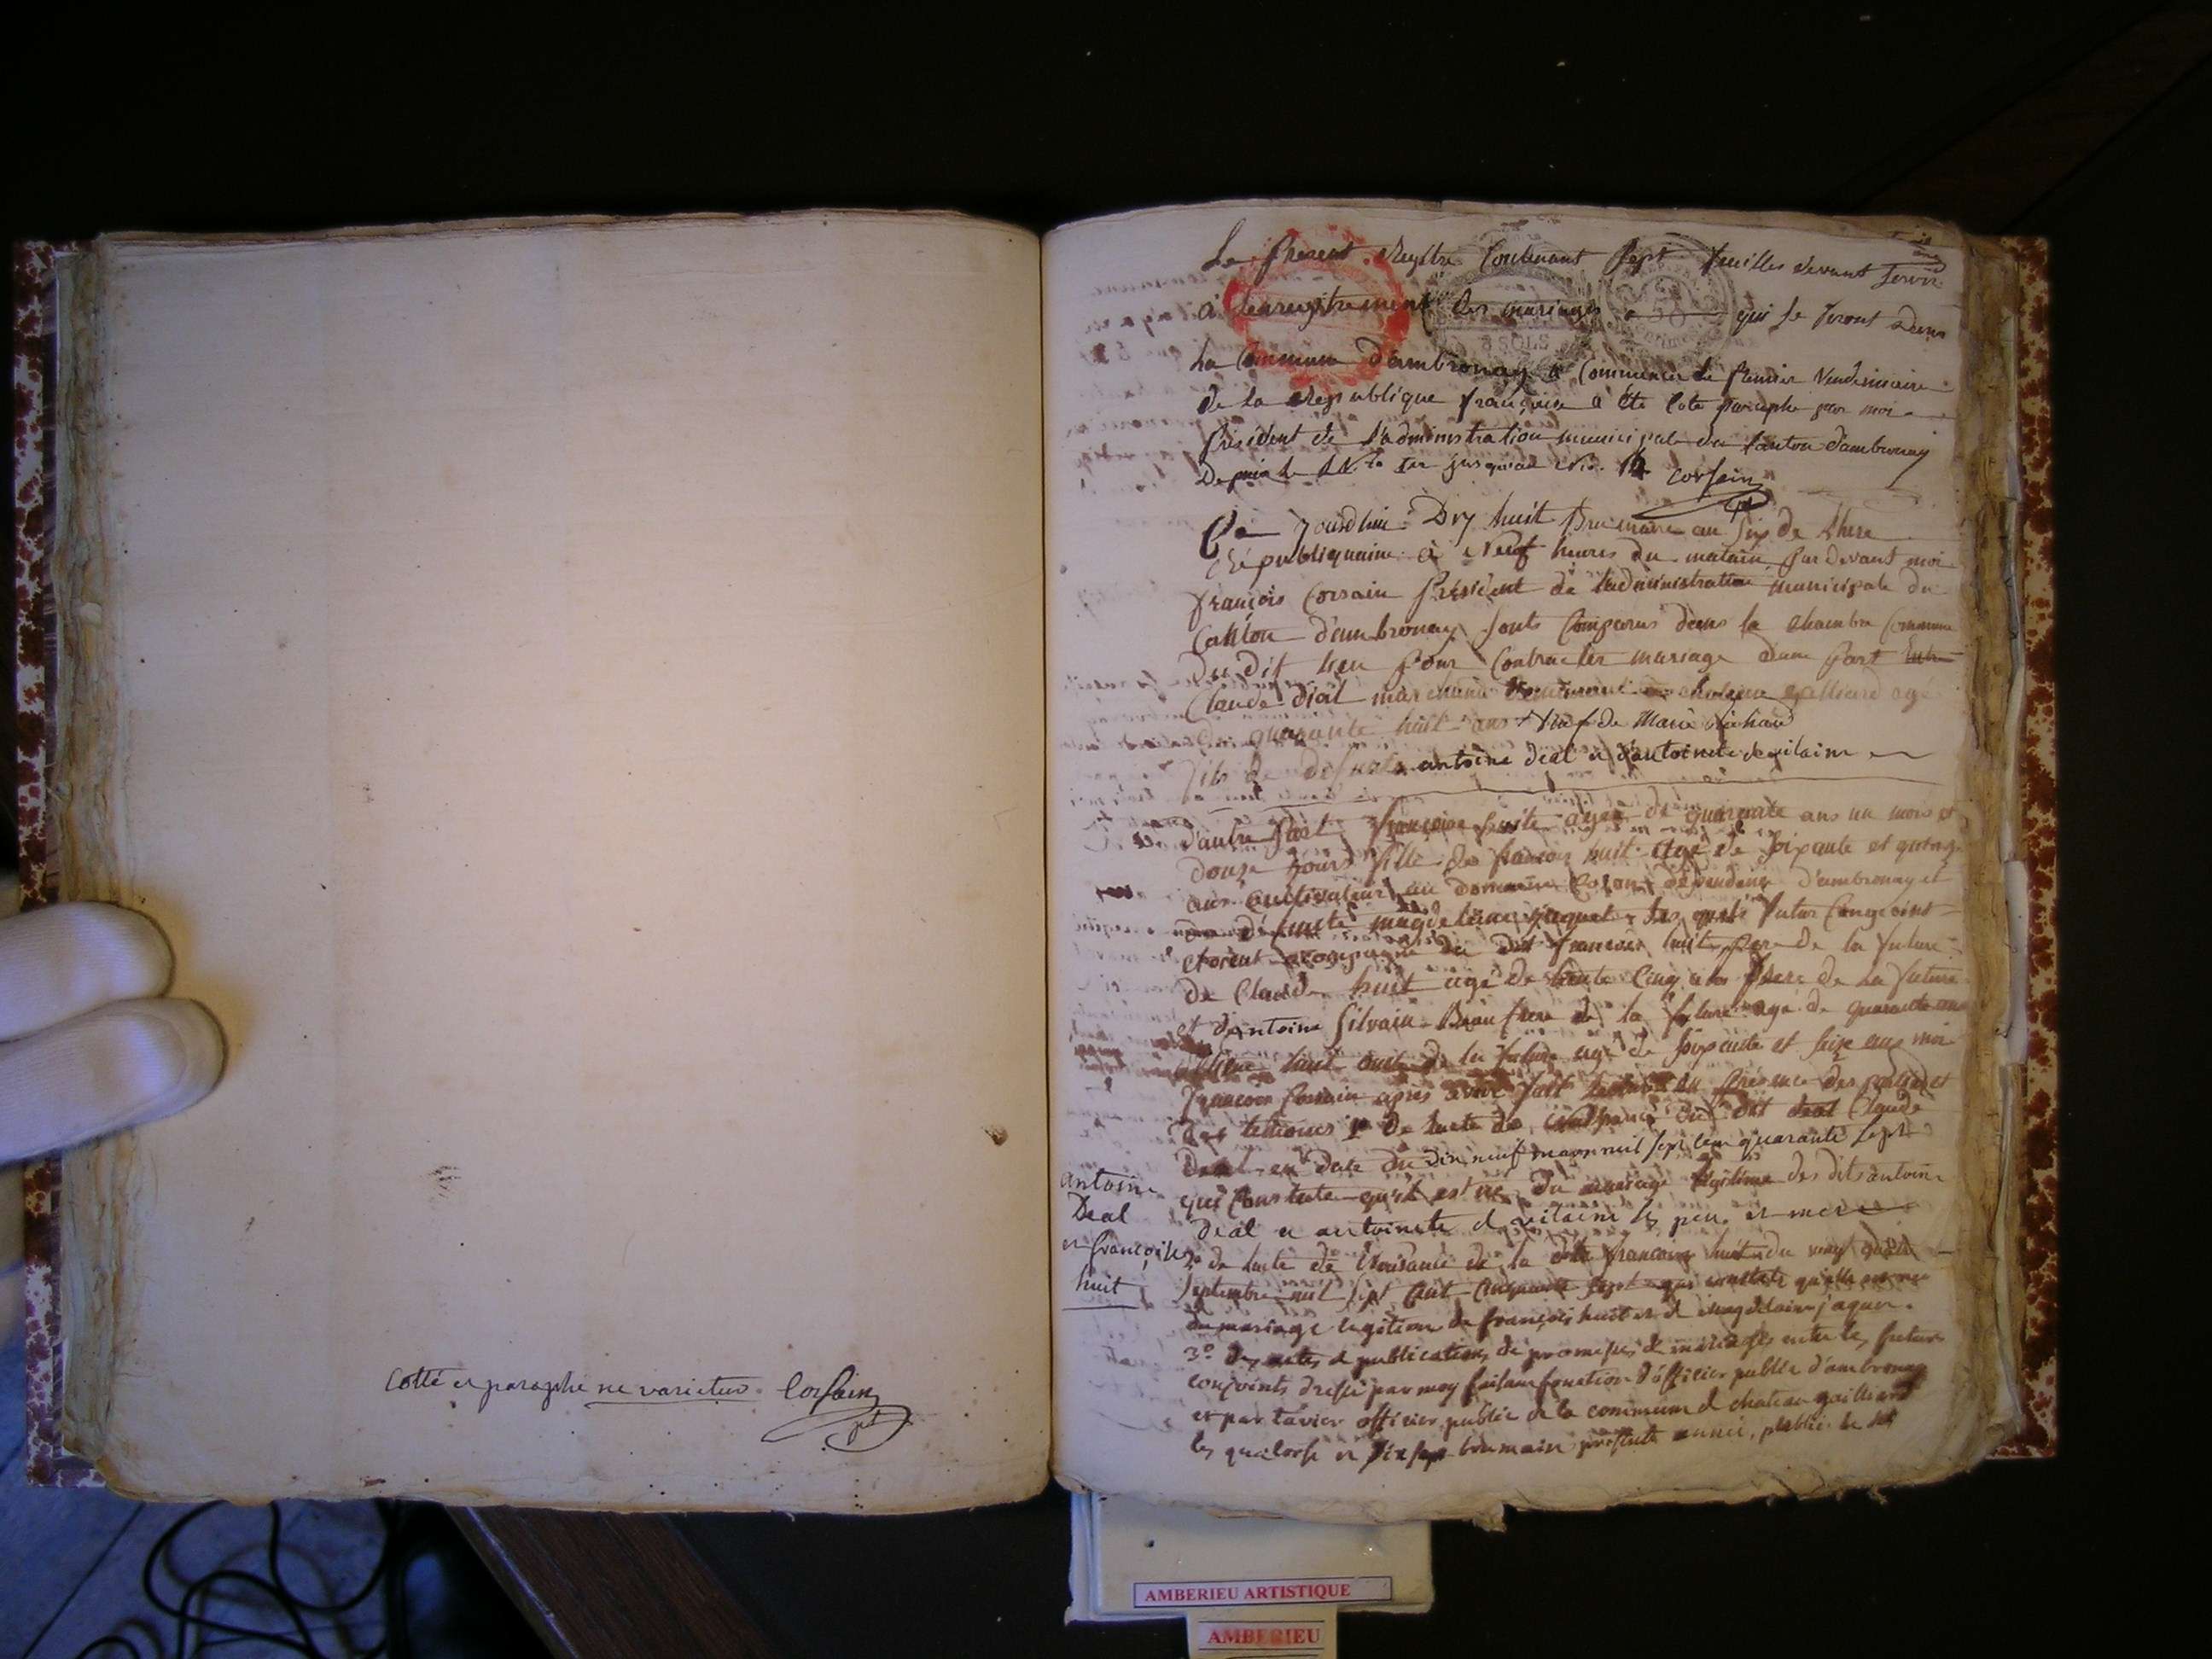 cotté et paraphé ne varietur. Corsain
pt
Le Present Registre Contenant Sept feuilles devant Servir
a Lenregistrement des mariages qui se feront dans
La Commune d'ambronay a Commencer Le Premier Vendemiaire
de la Republique françoise a été Coté paraphé par moi
Président de l'administration municipale du Canton d'ambronay
Depuis le N.o 1er jusquau No. 14 Corsain
pt
8 SOLS
50
Ce jourdhui Dix huit Brumaire an Six de Lhere
Républiquaine à Neuf heures du matain Par devant moi
françois Corsain Président de ladministration municipale du
Canton d'ambronay sonts Comparus dans la Chambre Commune
Du dit lieu Pour Contracter mariage dune Part
Claude déal marchand agé
De quarante huit ans Veuf de Marie
fils de défunts antoine déal et d'antoinete de vilaine
d'autre Part françoise huite agée de quarante ans un mois et
douze jours fille de françois huit agé de soixante et quinze
ans Cultivateur au domaine dépendance d'ambronay et
de défunte magdelaine jaquet Les quels futur Congoint
etoient acompagné du dit françois huit pere de la future
de Claude huit agé de trente Cinq ans frere de La future
et dantoine Silvain Beau frere de la future agé de quarante ans
huit oncle de la future agé de soixante et seize ans moi
françois Corsain après avoir fait lecture En Présence des parties et
des temoins 1o De lacte de naissance du dit déal Claude
Deal en date du dix neuf mars mil sept cent quarante sept
qui Constate quil est né du mariage légitime des dits antoine
déal et antoinete de vilaine ses pere et mere
2o de lacte de Naisance de la dite françoise huit du vingt
Septembre mil sept Cent Cinquante sept qui constate qu'elle est née
du mariage legitime de françois huit et de magdelaine jaquet.
3o des actes de publications de promesses de mariages entre les futurs
conjoints dressé par moy faisant fonction d'officier public d'ambronay
et par tavier officier public de la commune de chateau gaillard
les quatorse et dix sept brumaire presente année, publié le dit
antoine
Deal
et françoise
huit
AMBERIEU ARTISTIQUE
AMBERIEU